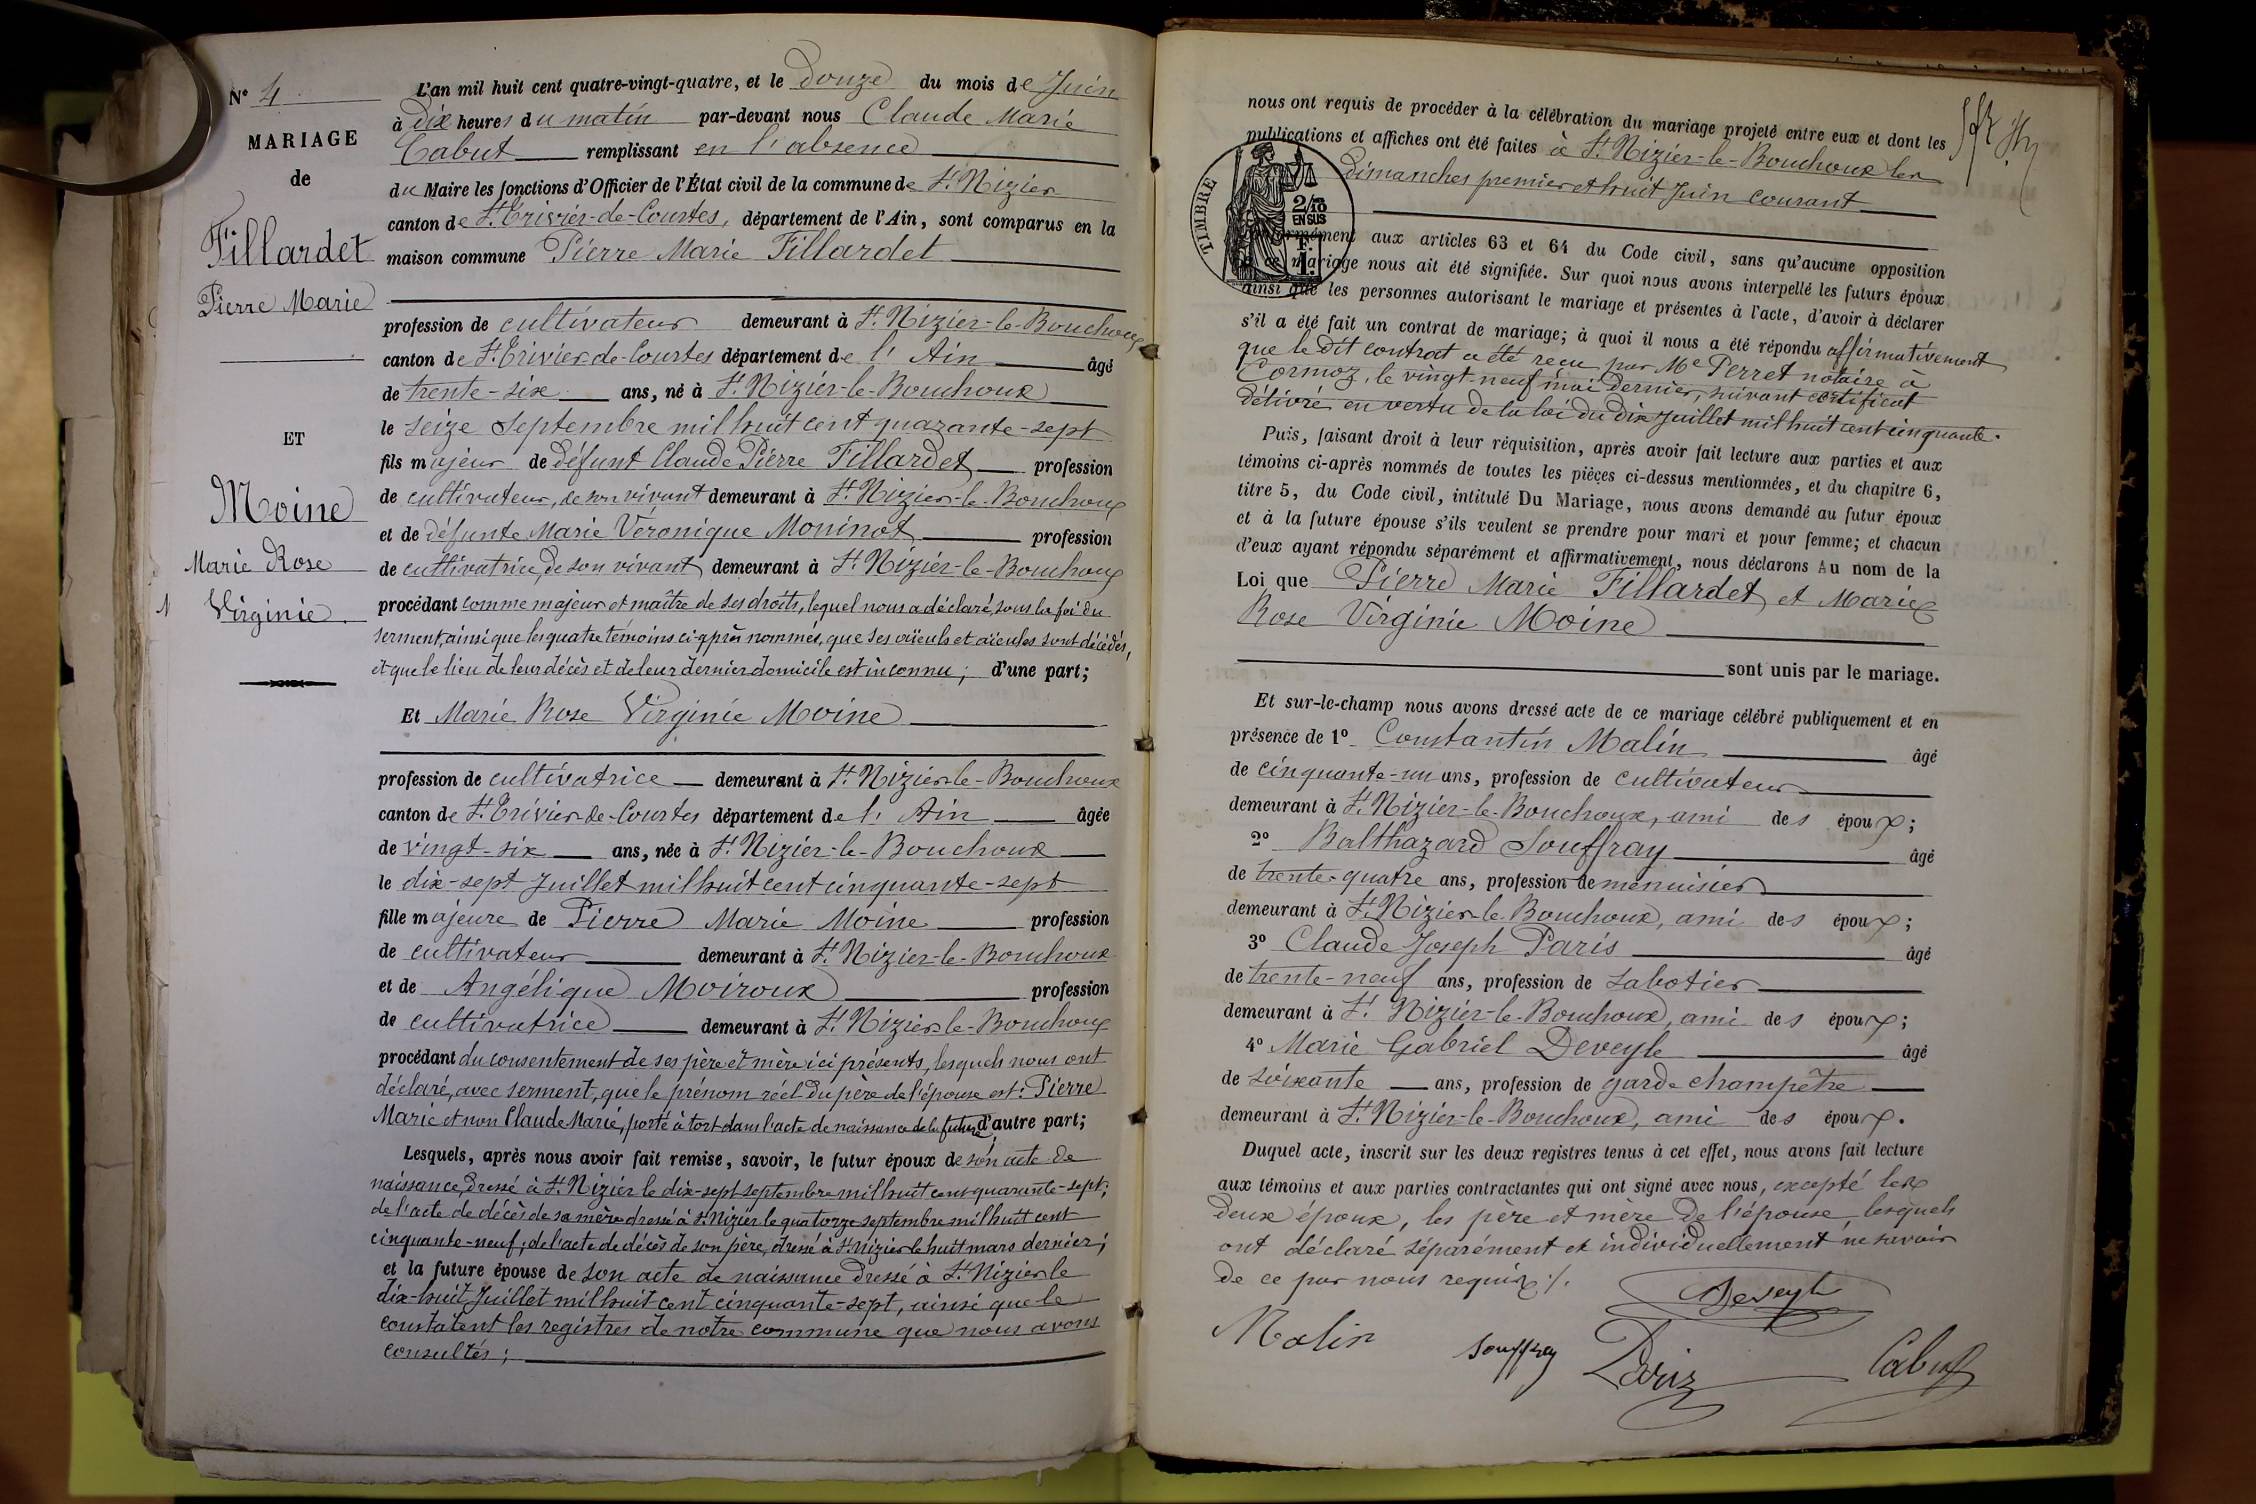 N° 4
MARIAGE
de
Fillardet
Pierre Marie
ET
Moine
Marie Rose
Virginie.
L'an mil huit cent quatre-vingt-quatre, et le douze du mois de Juin
à dix heures du matin par-devant nous Claude Marie
Cabut remplissant en l'absence
du Maire les fonctions d'Officier de l'État civil de la commune de St Nizier
canton de St Trivier-de-Courtes, département de l'Ain, sont comparus en la
maison commune Pierre Marie Fillardet
profession de cultivateur demeurant à St Nizier-le-Bouchoux
canton de St Trivier-de-Courtes département de l'Ain âgé
de trente-six ans, né à St Nizier-le-Bouchoux
le seize Septembre mil huit cent quarante-sept
fils majeur de défunt Claude Pierre Fillardet profession
de cultivateur, de son vivant demeurant à St Nizier-le-Bouchoux
et de défunte Marie Véronique Moninot profession
de cultivatrice, de son vivant demeurant à St Nizier-le-Bouchoux
procédant comme majeur et maître de ses droits, lequel nous a déclaré, sous la foi du
serment, ainsi que les quatre témoins ci-après nommés, que ses aïeuls et aïeules sont décédés,
et que le lieu de leur décès et de leur dernier domicile est inconnu; d'une part;
Et Marie Rose Virginie Moine
profession de cultivatrice demeurant à St Nizier-le-Bouchoux
canton de St Trivier-de-Courtes département de l'Ain âgée
de vingt-six ans, née à St Nizier-le-Bouchoux
le dix-sept Juillet mil huit cent cinquante-sept
fille majeure de Pierre Marie Moine profession
de cultivateur demeurant à St Nizier-le-Bouchoux
et de Angélique Moiroux profession
de cultivatrice demeurant à St Nizier-le-Bouchoux
procédant du consentement de ses père et mère ici présents, lesquels nous ont
déclaré, avec serment, que le prénom réel du père de l'épouse est: Pierre
Marie et non Claude Marie, porté à tort dans l'acte de naissance de la future, d'autre part;
Lesquels, après nous avoir fait remise, savoir, le futur époux de son acte de
naissance, dressé à St Nizier le dix-sept septembre mil huit cent quarante-sept;
de l'acte de décès de sa mère dressé à St Nizier le quatorze septembre mil huit cent
cinquante-neuf; de l'acte de décès de son père, dressé à St Nizier le huit mars dernier;
et la future épouse de son acte de naissance dressé à St Nizier le
dix-huit Juillet mil huit cent cinquante-sept, ainsi que le
constatent les registres de notre commune que nous avons
consultés;
nous ont requis de procéder à la célébration du mariage projeté entre eux et dont les
publications et affiches ont été faites à St Nizier-le-Bouchoux les
dimanches premier et huit Juin courant
TIMBRE
2/10
EN SUS
F.
1.
conformément aux articles 63 et 64 du Code civil, sans qu'aucune opposition
à ce mariage nous ait été signifiée. Sur quoi nous avons interpellé les futurs époux
ainsi que les personnes autorisant le mariage et présentes à l'acte, d'avoir à déclarer
s'il a été fait un contrat de mariage; à quoi il nous a été répondu affirmativement
que le dit contrat a été reçu par Me Perret notaire à
Cormoz, le vingt-neuf mai dernier, suivant certificat
délivré en vertu de la loi du dix Juillet mil huit cent cinquante.
Puis, faisant droit à leur réquisition, après avoir fait lecture aux parties et aux
témoins ci-après nommés de toutes les pièces ci-dessus mentionnées, et du chapitre 6,
titre 5, du Code civil, intitulé Du Mariage, nous avons demandé au futur époux
et à la future épouse s'ils veulent se prendre pour mari et pour femme; et chacun
d'eux ayant répondu séparément et affirmativement, nous déclarons Au nom de la
Loi que Pierre Marie Fillardet et Marie
Rose Virginie Moine
sont unis par le mariage.
Et sur-le-champ nous avons dressé acte de ce mariage célébré publiquement et en
présence de 1° Constantin Malin âgé
de cinquante-un ans, profession de cultivateur
demeurant à St Nizier-le-Bouchoux, ami des époux;
2° Balthazard Souffray âgé
de trente-quatre ans, profession de menuisier
demeurant à St Nizier-le-Bouchoux, ami des époux;
3° Claude Joseph Paris âgé
de trente-neuf ans, profession de sabotier
demeurant à St Nizier-le-Bouchoux, ami des époux;
4° Marie Gabriel Deveyle âgé
de soixante ans, profession de garde champêtre
demeurant à St Nizier-le-Bouchoux, ami des époux.
Duquel acte, inscrit sur les deux registres tenus à cet effet, nous avons fait lecture
aux témoins et aux parties contractantes qui ont signé avec nous, excepté les
deux époux, les père et mère de l'épouse, lesquels
ont déclaré séparément et individuellement ne savoir
de ce par nous requis ./.
Deveyle
Malin Souffray Pariz Cabut